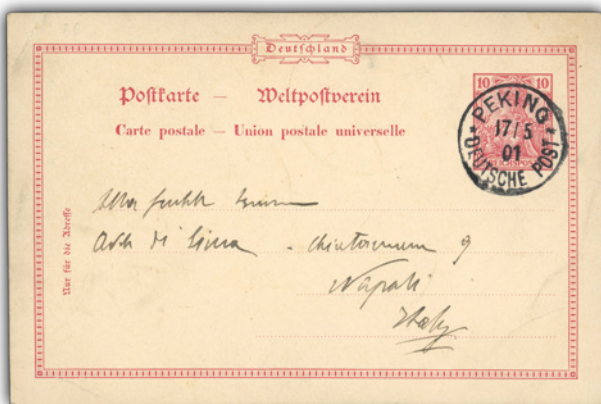 Deutschland
Postkarte — Weltpostverein
Carte postale — Union postale universelle
10 10
REICHSPOST
* PEKING *
17/5
01
DEUTSCHE POST
Nur für die Adresse
di 9
Napoli
Italy